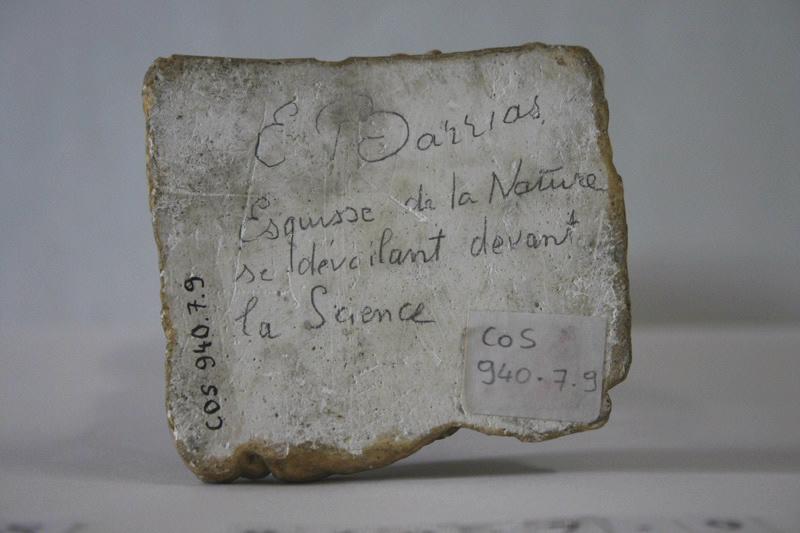 E Barrias
Esquisse de la Nature
se dévoilant devant
la Science
COS 940.7.9
COS
940.7.9